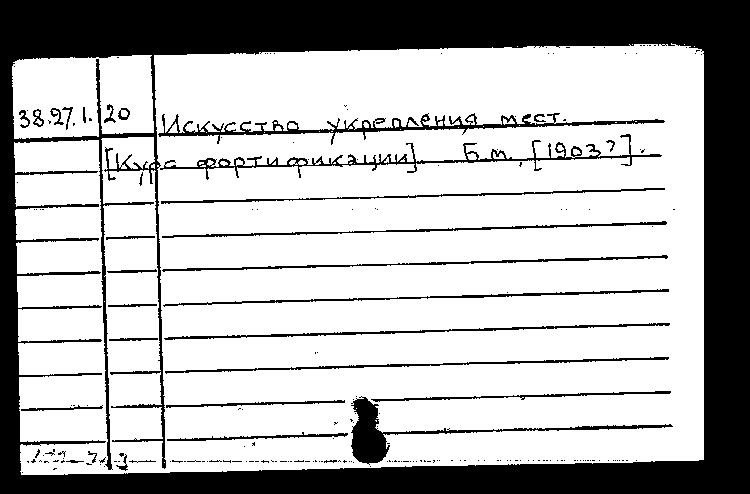 38.27.1. 20 Искусство укрепления мест.
[Курс фортификации]. Б.м., [1903?].